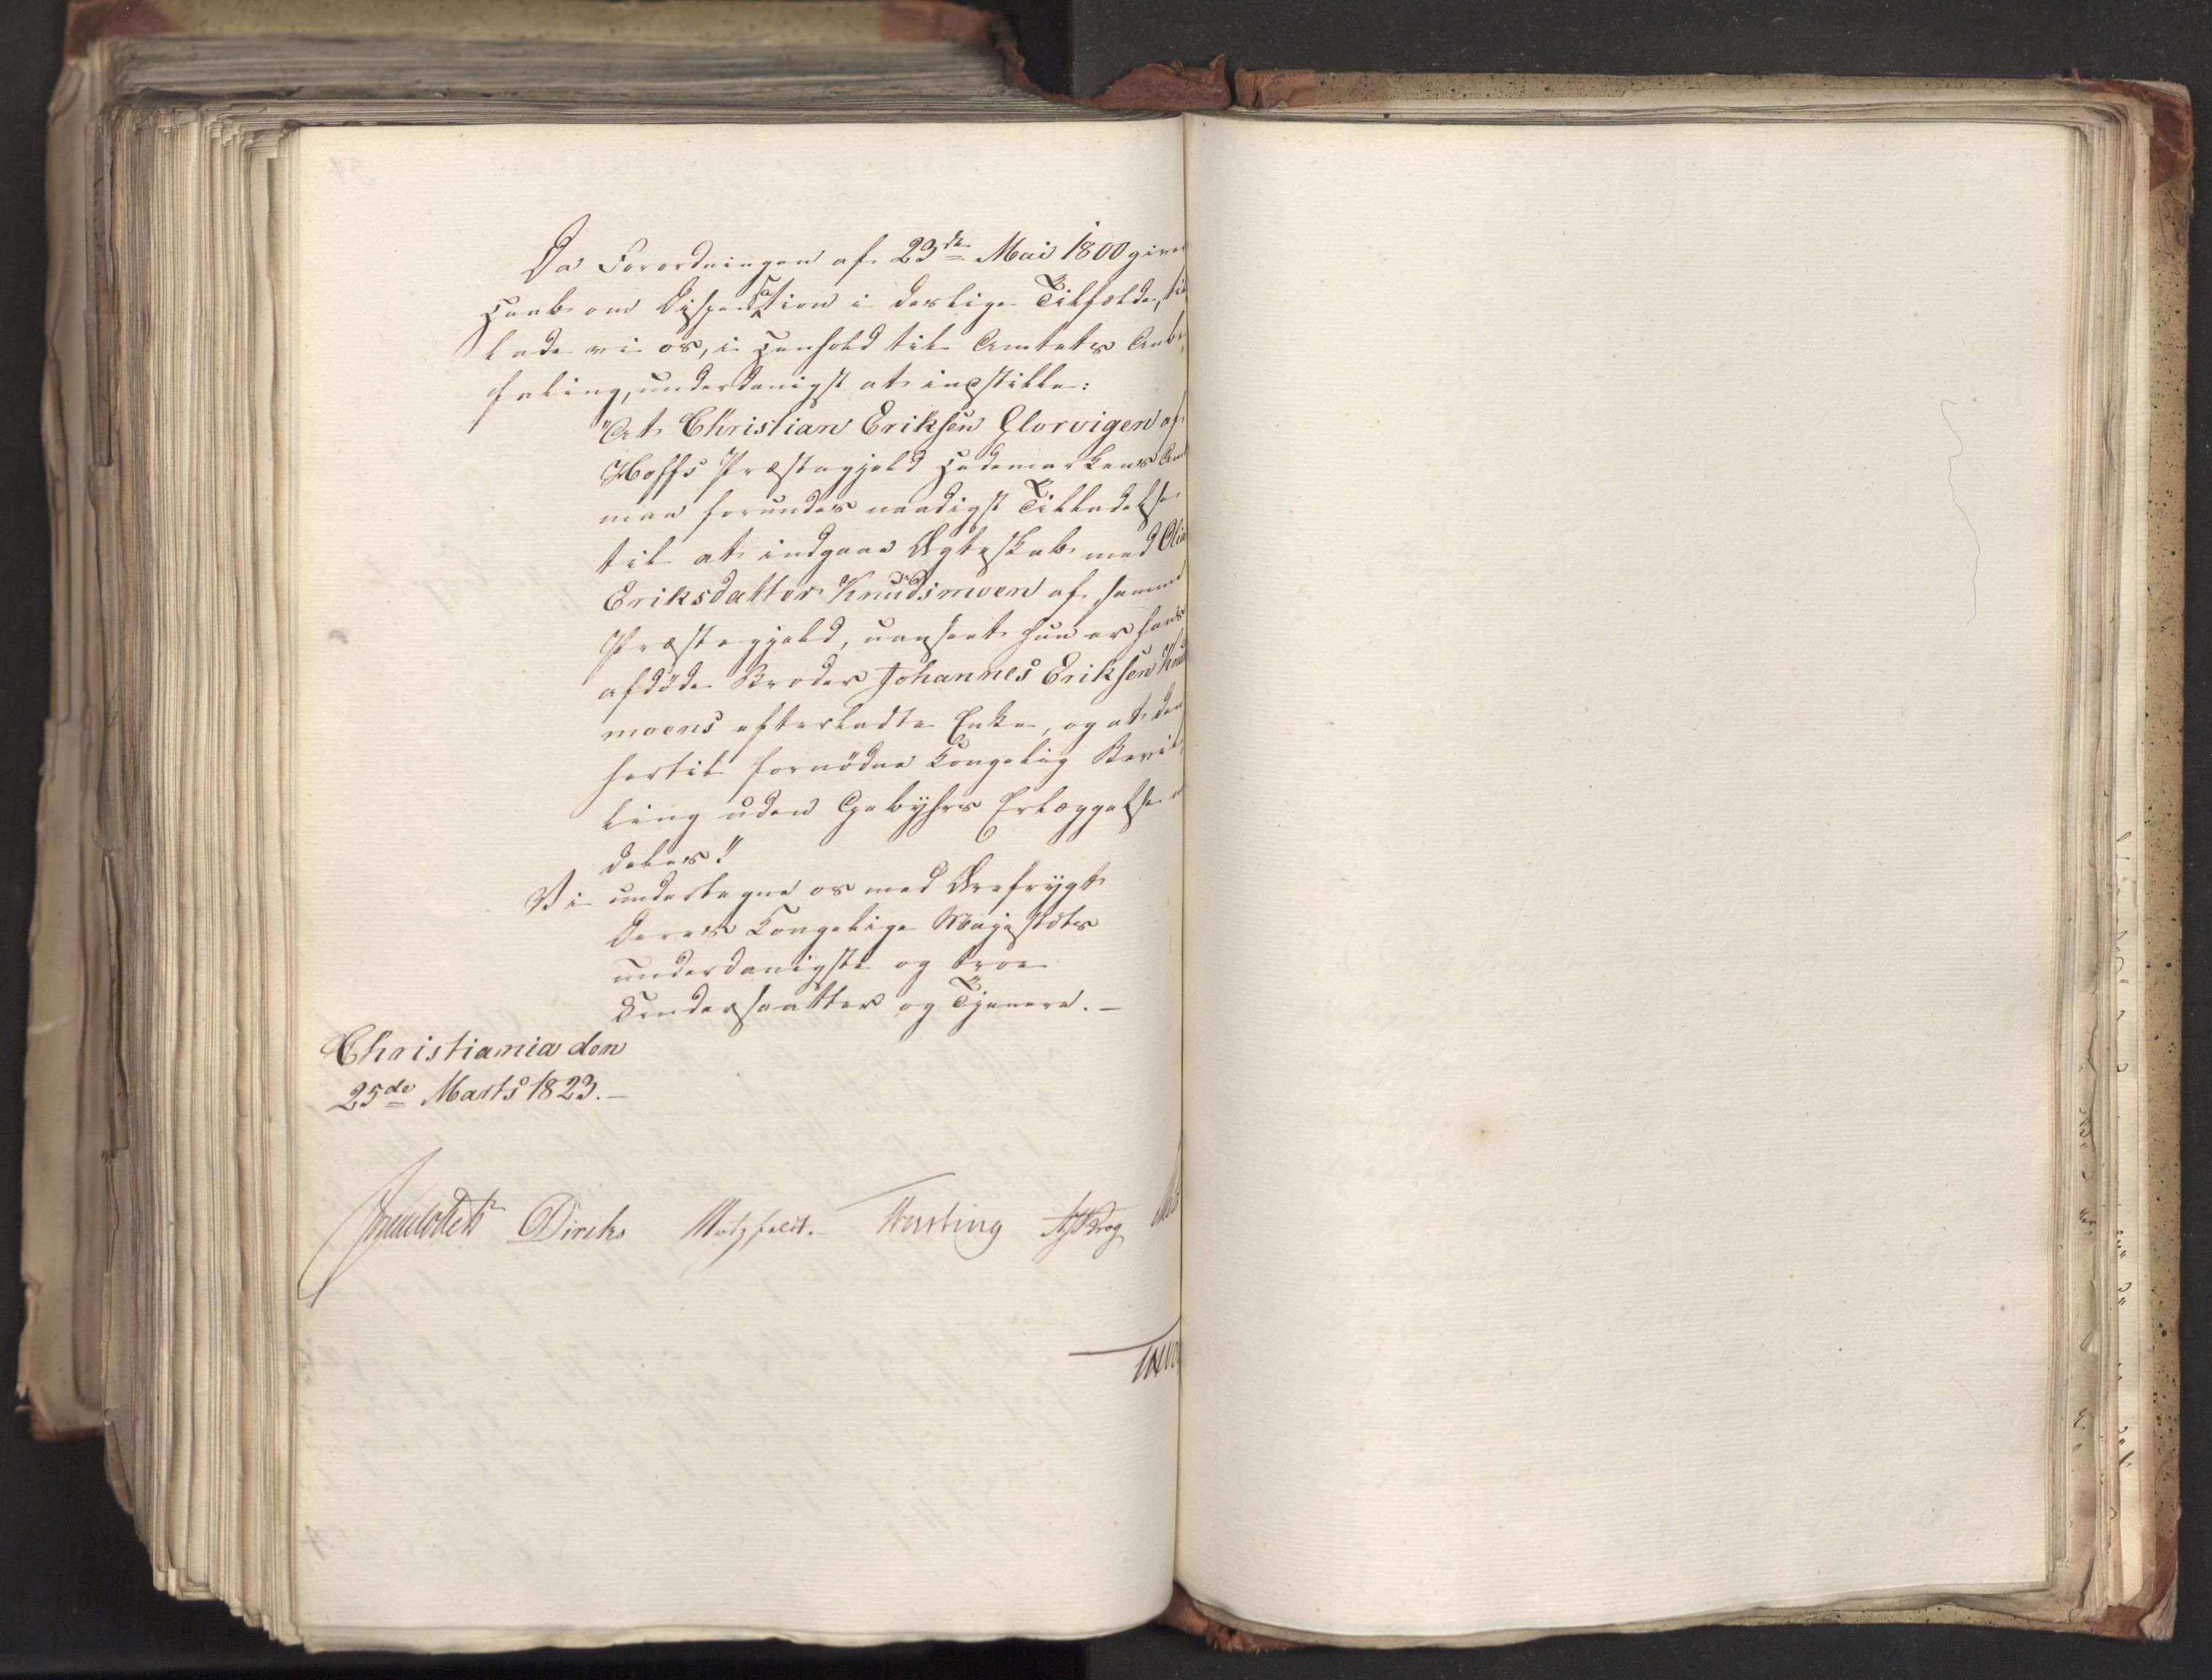 Da Forordningen af 23de Mai 1800 giver
Haab om Dispensation i deslige Tilfælde, til-
lade vi os, i Henhold til Amtets Anbe-
faling, underdanigst at indstille:
"At Christian Eriksen Glorvigen af
Hoffs Præstegjeld Hedemarkens Amt
maa forundes naadigst Tilladelse
til at indgaae Ægteskab med Olia
Eriksdatter Knudsmoen af samme
Præstegjeld, uanseet hun er hans
afdøde Broder Johannes Eriksen Knuds
moens efterladte Enke, og at den
hertil fornødne Kongelig Bevil-
ling uden Gebyhrs Erlæggelse
deles"
Vi undertegne os med Ærefrygt
Deres Kongelige Majestæts
underdanigste og troe
Undersaatter og Tjenere. —
Christiania den
25de Marts 1823. —
Diriks Motzfeldt. Krog